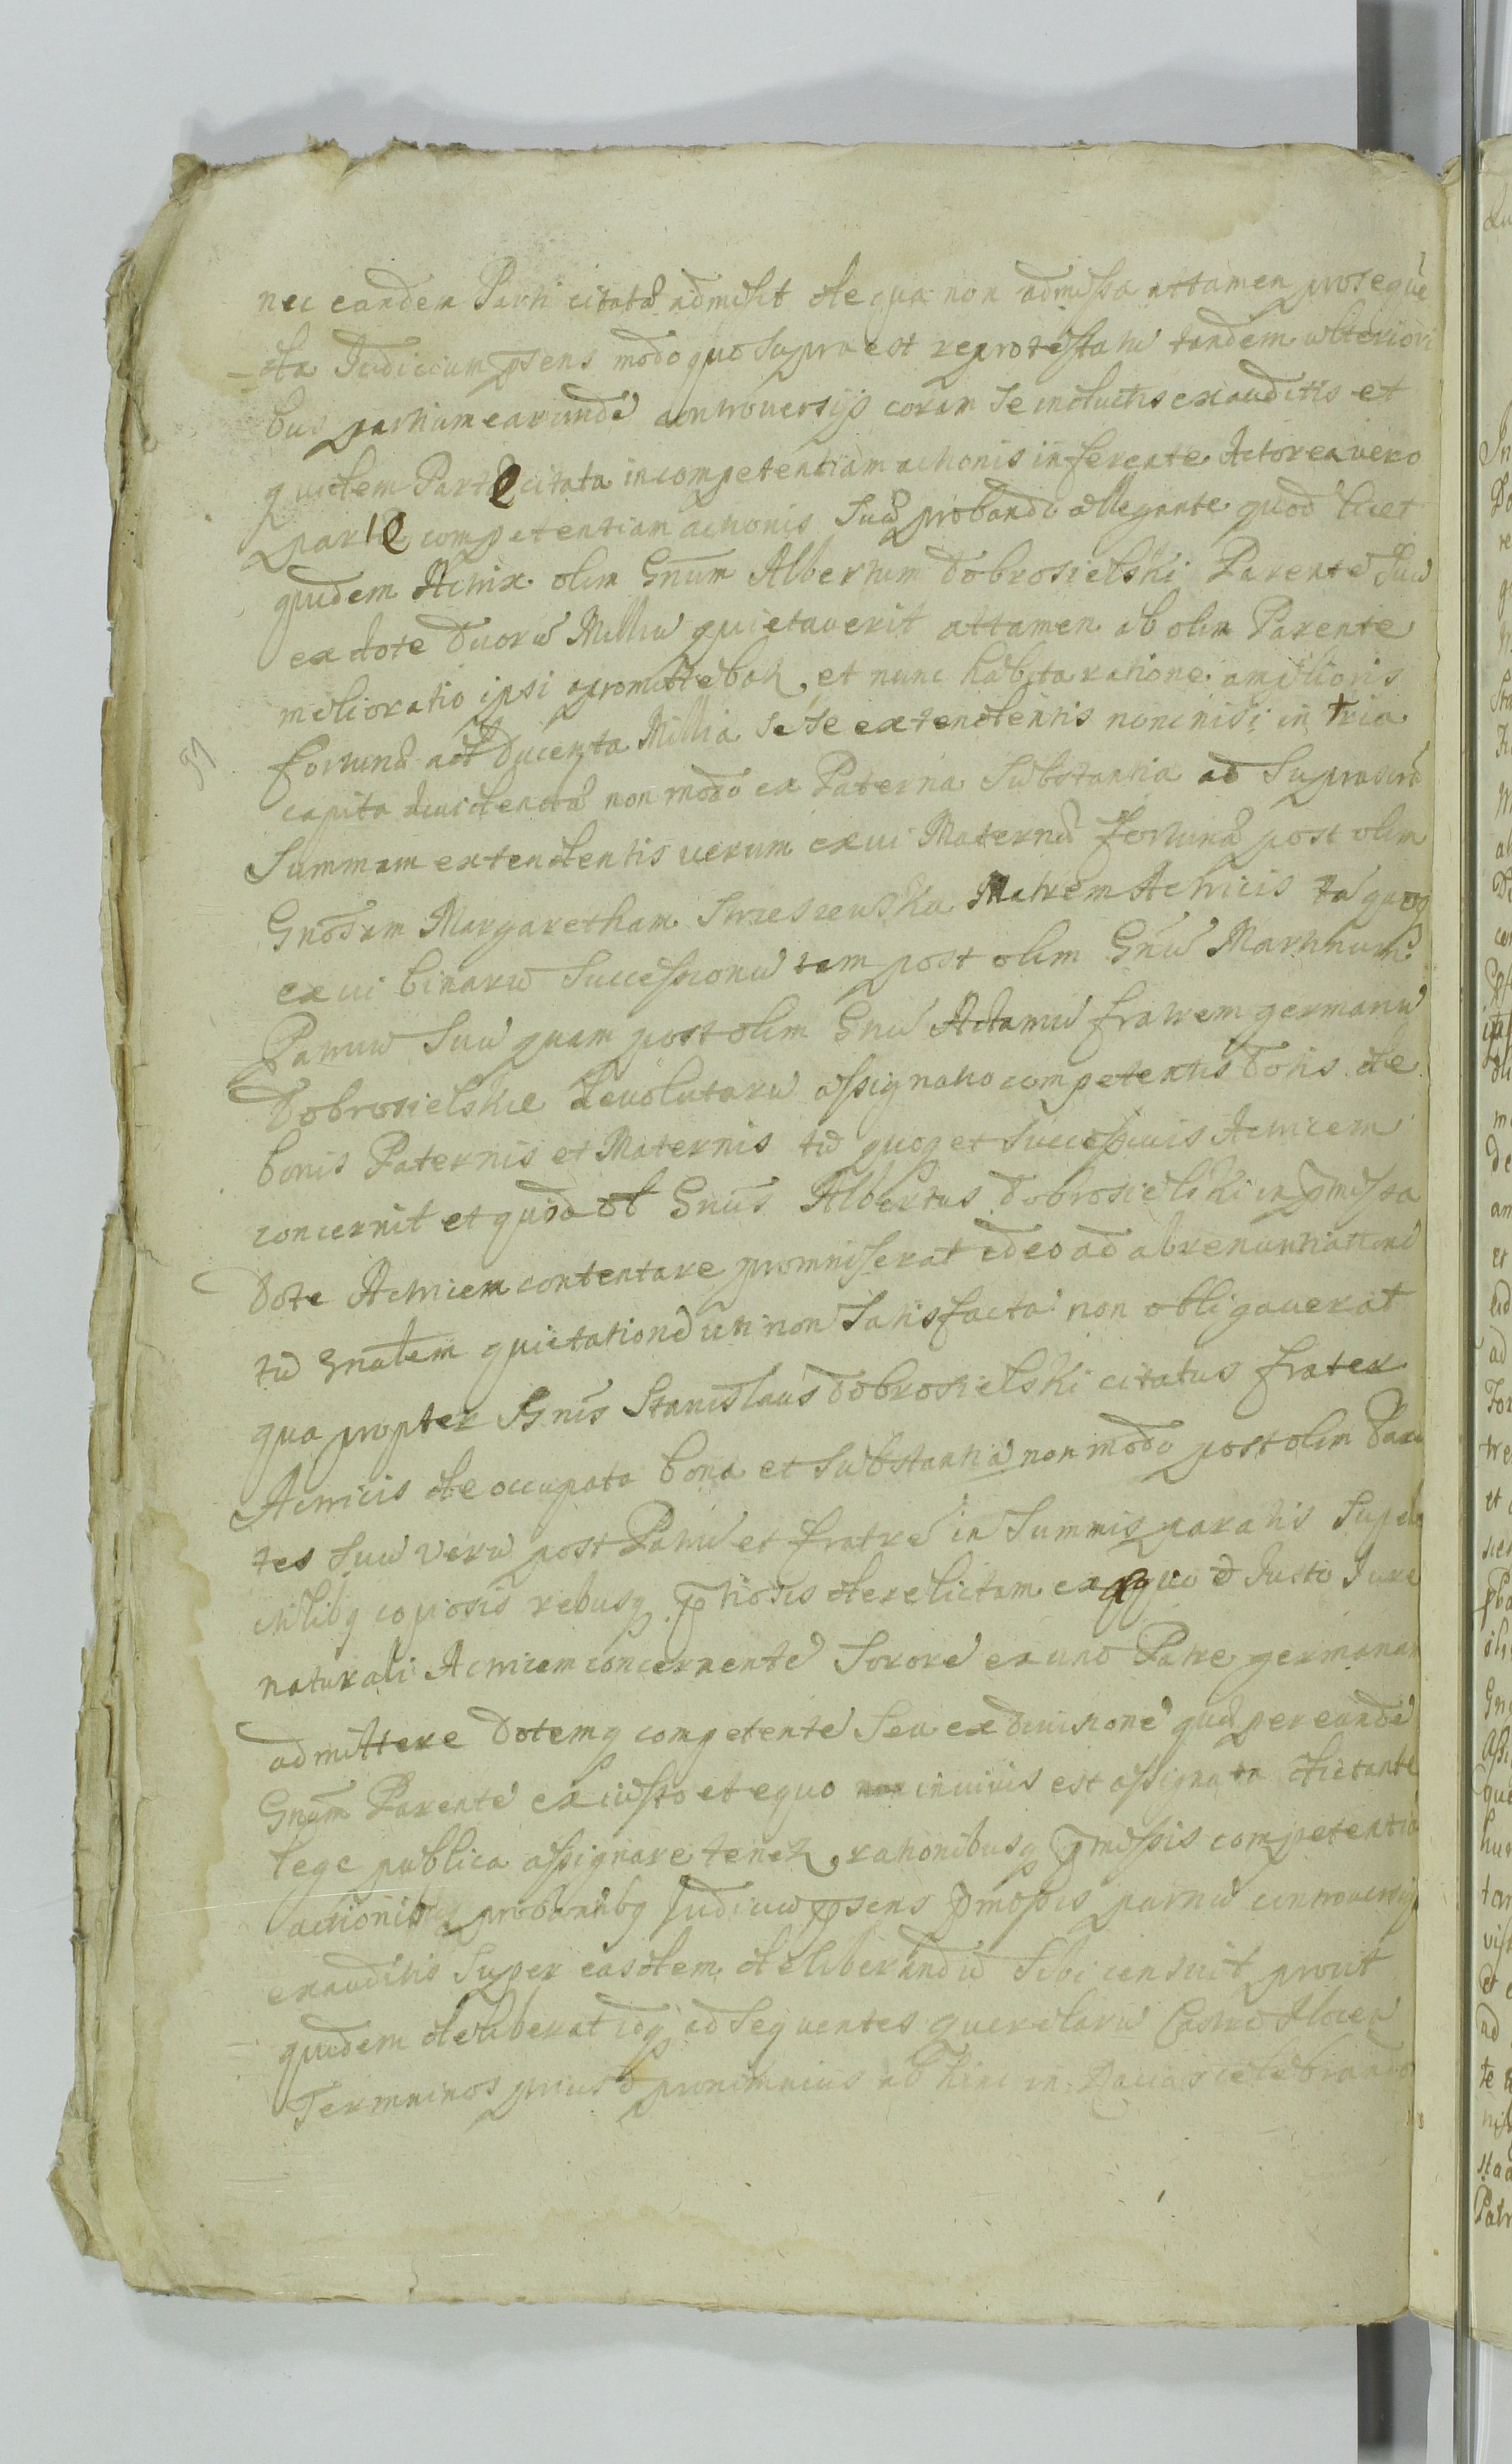 nec eandem Parti citatæ admisit de qua non admissa attamen proseque
da Judicium pñs modo quo supra est reprotestatu tandem ulteriori
bus partium earundē controversijs coram se inductis exauditis et
quidem Parte citata incompetentiam actionis inferente Actorea vero
parte competentiam actionis suæ probando allegante quod licet
quidem Actrix olim Gnūm Albertum Dobrosielski Parentē suū
ex dote duorū Milliū quietaverit attamen ab olim Parente
melioratio ipsi apromittebatꝛ, et nunc habita ratione amplioris
fortunæ ad Ducenta Millia sese extendentis nonnisi in tria
capita dividendæ non modo ex Paterna substantia ad supra
Summam extendentis verum ex vi Maternæ fortunæ post olim
Gnosam Margaretham Matrem Actricis tū quoq
ex vi binarū successionū tam post olim Gnū Martinum
Patruū suū quam post olim Gnū Adamū fratrem germanū
Dobrosielskie devolutarū assignatio competentis Dotis de
bonis Paternis et Maternis tū quoq et successivis Actricem
concernit et quod Gnūs Albertus Dobrosielski in pmissa
Dote Actricem contentare promiserat ideo ad abrenuntiationē
tū Gnalem quietationē uti non satisfacta non obligaverat
qua propter Gnūs Stanislaus Dobrosielski citatus frater
Actricis de occupata bona et substantiā non modo post olim Paren
tes suū verū post Patruū et fratrē in summis paratis supele
ctilibq copiosis rebusq ptiosis derelictam ex æquo & Justo Jure
naturali Actricem concernentē Sororē ex uno Patre germanam
admittere Dotemq competentē seu ex divisionē quæ per eundē
Gnūm Parentē ex iusto et equo non in vivis est assignata dictante
lege publica assignare tenetꝛ, rationibusq pmissis competentiā
actionis probantibq Judiciū pñs pmissis partiū controversijs
exauditis super easdem deliberandū sibi censuit prout
quidem deliberat idq ad sequentes querelarū Castrē
Terminos prius & proximius ab hinc in Racias celebrando